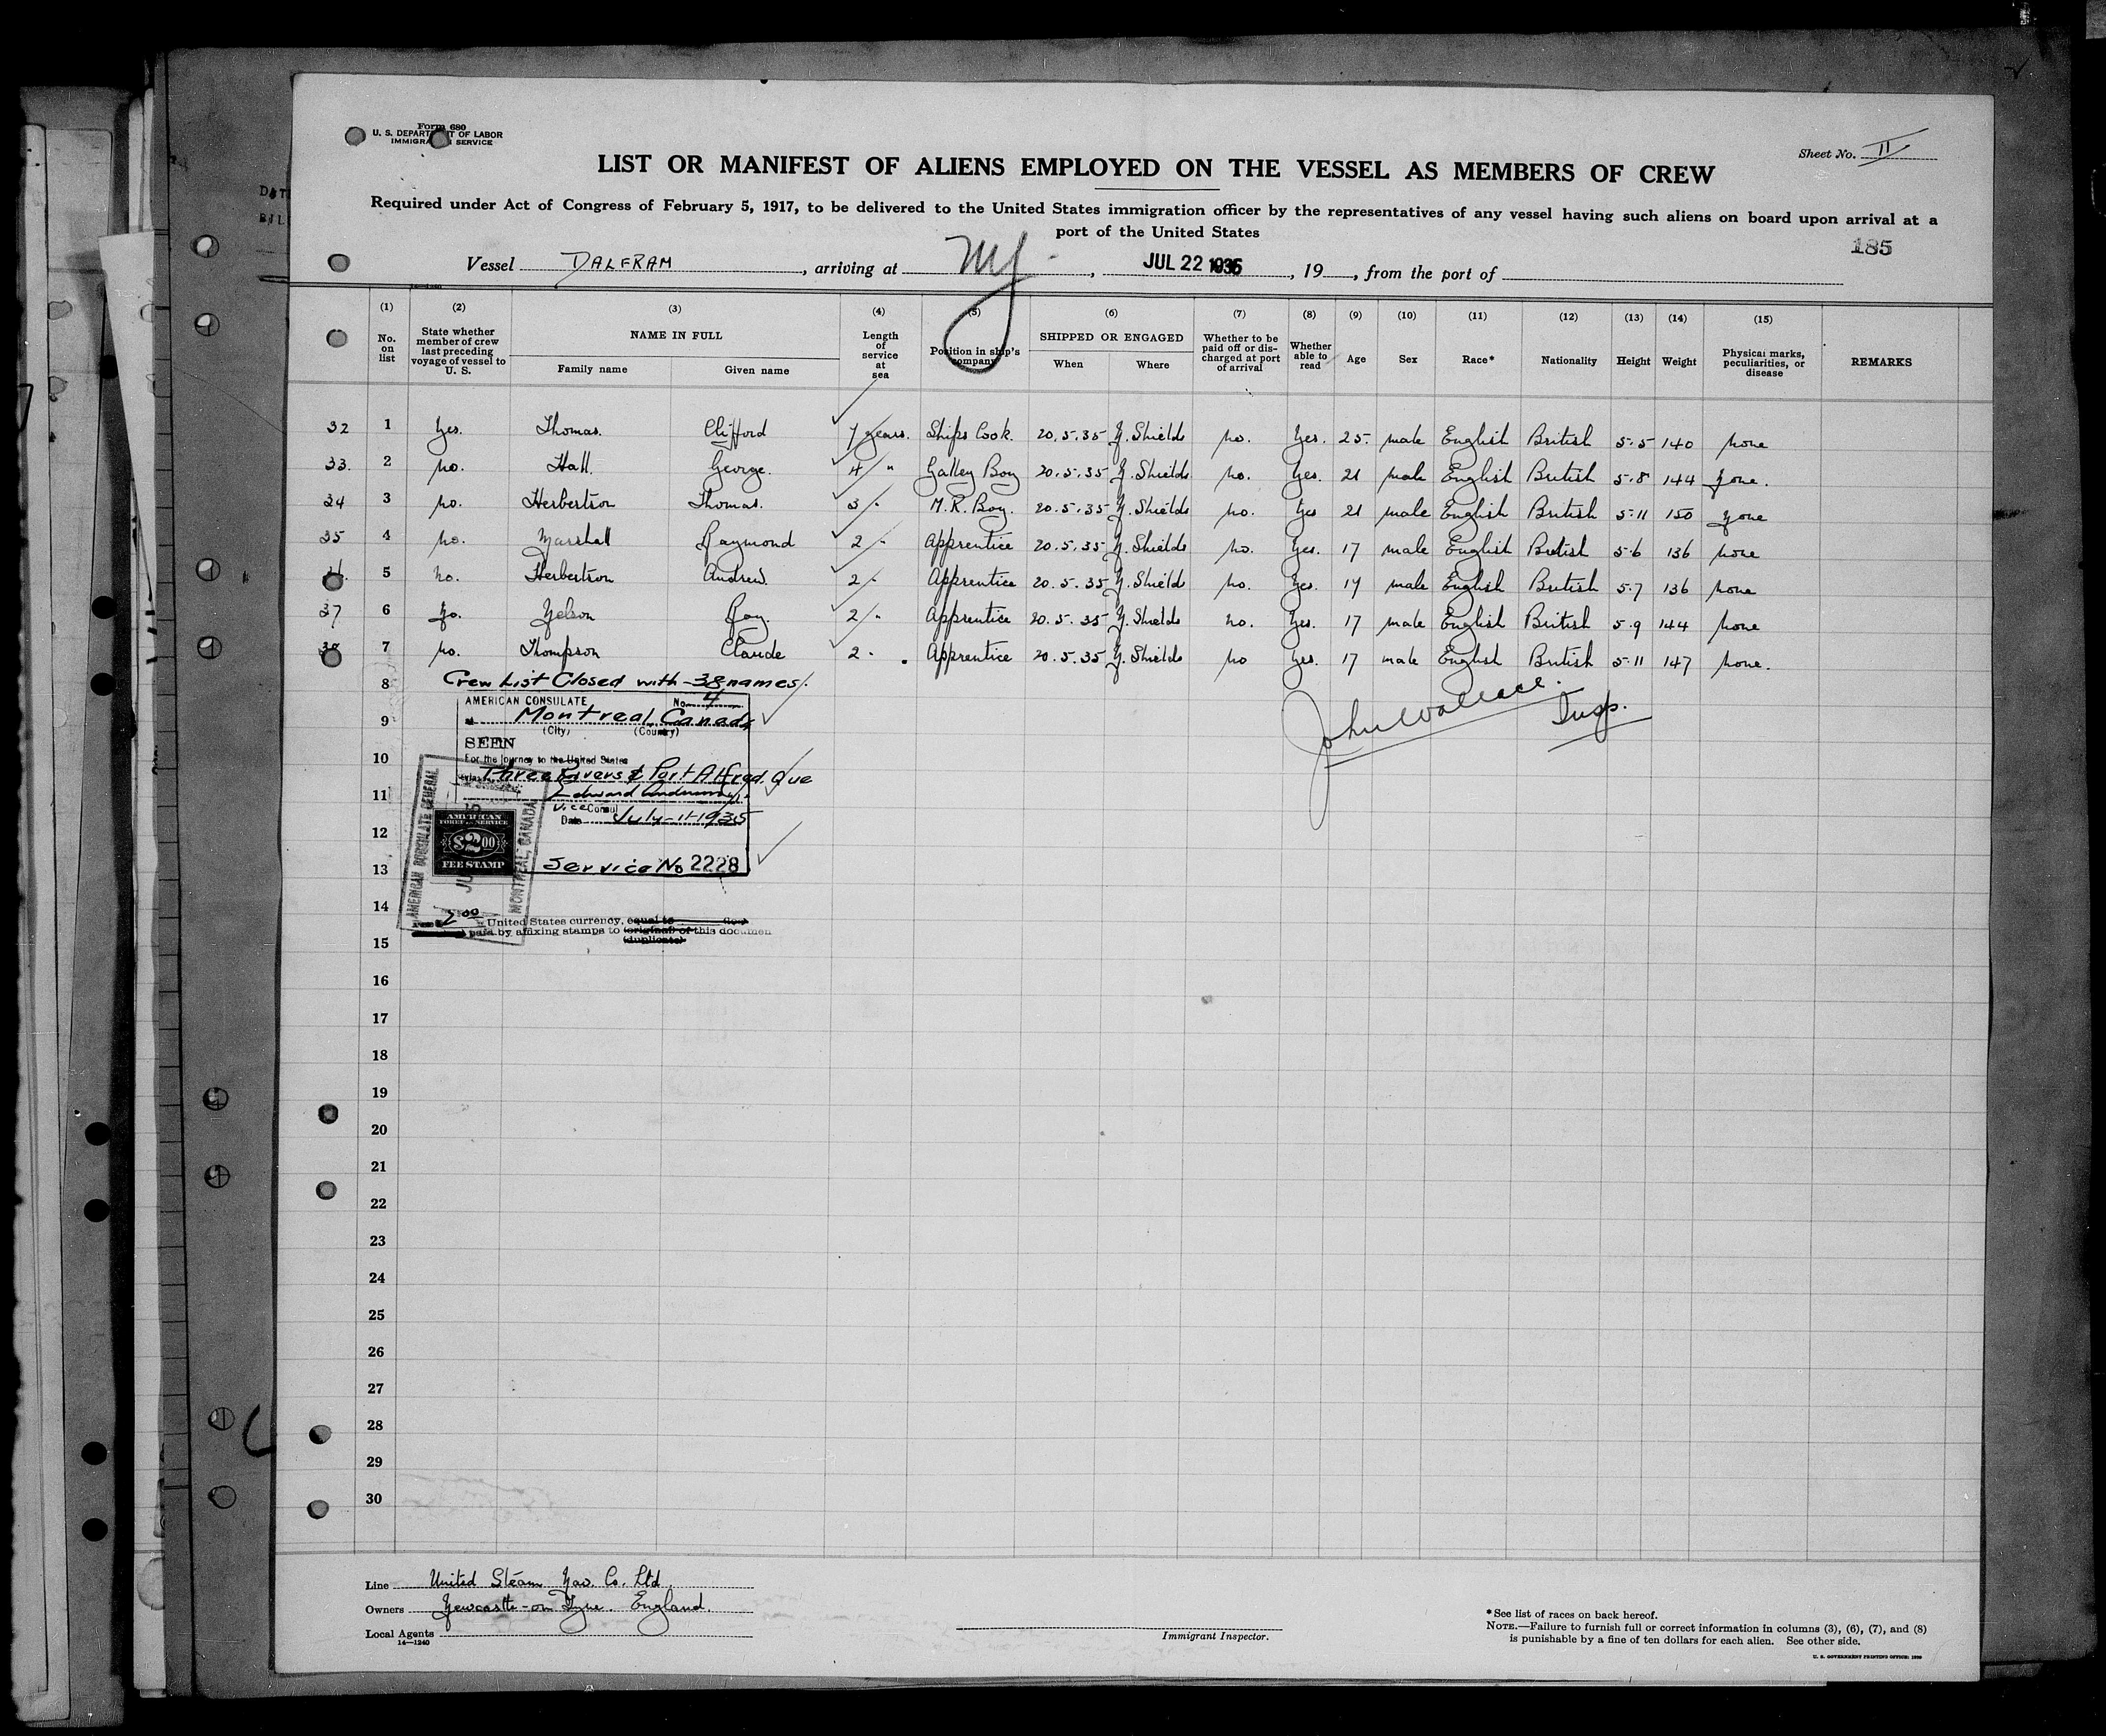 Form 680
U. S. DEPARTMENT OF LABOR
IMMIGRATION SERVICE
Sheet No. II
LIST OR MANIFEST OF ALIENS EMPLOYED ON THE VESSEL AS MEMBERS OF CREW
Required under Act of Congress of February 5, 1917, to be delivered to the United States immigration officer by the representatives of any vessel having such aliens on board upon arrival at a
port of the United States
185
Vessel DALFRAM, arriving at NY, JUL 22 1935, 19, from the port of
(1) (2) (3) (4) (5) (6) (7) (8) (9) (10) (11) (12) (13) (14) (15)
No. on list State whether member of crew last preceding voyage of vessel to U. S. NAME IN FULL Family name Given name Length of service at sea Position in ship's company SHIPPED OR ENGAGED When Where Whether to be paid off or discharged at port of arrival Whether able to read Age Sex Race* Nationality Height Weight Physical marks, peculiarities, or disease REMARKS
32 1 Yes. Thomas. Clifford 7 years. Ships Cook. 20.5.35 N. Shields no. Yes. 25. male English British 5.5 140 none
33. 2 no. Hall. George. 4 " Galley Boy 20.5.35 N. Shields no. Yes. 21 male English British 5.8 144 None.
34 3 no. Herbertson Thomas. 3 " M.R. Boy. 20.5.35 N. Shields no. Yes 21 male English British 5.11 150 None
35 4 no. Marshall Raymond 2 " Apprentice 20.5.35 N. Shields no. Yes. 17 male English British 5.6 136 none
5 no. Herbertson Andrew. 2 " Apprentice 20.5.35 N. Shields no. Yes. 17 male English British 5.7 136 none
37 6 No. Nelson Roy. 2 " Apprentice 20.5.35 N. Shields no. Yes. 17 male English British 5.9 144 none
38 7 no. Thompson Claude 2 " Apprentice 20.5.35 N. Shields no Yes. 17 male English British 5.11 147 none.
8 Crew List Closed with -38 names.
John Wallace. Insp.
AMERICAN CONSULATE No. 4
9 at Montreal, Canada
(City) (Country)
SEEN
10 For the journey to the United States
via Three Rivers & Port Alfred Que
11 Edward Anderson
Vice Consul
12 Date July-11-1935
AMERICAN FOREIGN SERVICE
$2.00
FEE STAMP
AMERICAN CONSULATE GENERAL
MONTREAL, CANADA
13 Service No 2228
14
2.00 United States currency, equal to
paid by affixing stamps to (original) of this documen
(duplicate)
15
16
17
18
19
20
21
22
23
24
25
26
27
28
29
30
Line United Steam Nav. Co. Ltd.
Owners Newcastle-on-Tyne. England.
Local Agents
14—1240
Immigrant Inspector.
*See list of races on back hereof.
NOTE.—Failure to furnish full or correct information in columns (3), (6), (7), and (8)
is punishable by a fine of ten dollars for each alien. See other side.
U. S. GOVERNMENT PRINTING OFFICE